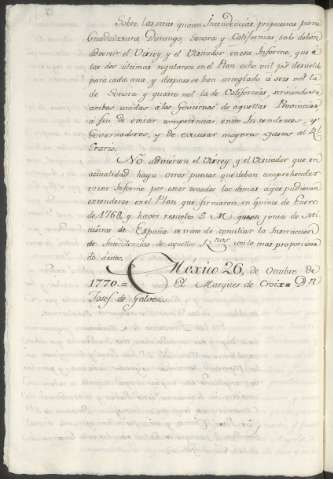 Sobre las otras quatro Intendencias propuestas para
Guadalaxara, Durango, Sonora y Californias solo deben
advertir el Virrey y el Visitador en este Informe, que á
las dos últimas regularon en el Plan ocho mil ps de sueldo
para cada una, y despues se han arreglado á seis mil la
de Sonora y quatro mil la de Californias,
ambas unidas á los Goviernos de aquellas Provincias
á fin de evitar competencias entre Intendentes, y
Governadores, y de escusar mayores gastos al Rl
Erario.
No advierten el Virrey, y el Visitador que en
actualidad haya otros puntos que deban comprehender
en este Informe, por estar tocados los demas
extenderse en el Plan que firmaron en quince de Enero
de 1768, y haver resuelto S. M. que
de España se han de conciliar la Instruccion
de Intendencias de aquellos con la mas proporciona
Mexico 26, de Octubre de
1770.= El Marques de Croix= Dn
Josef de Galvez.